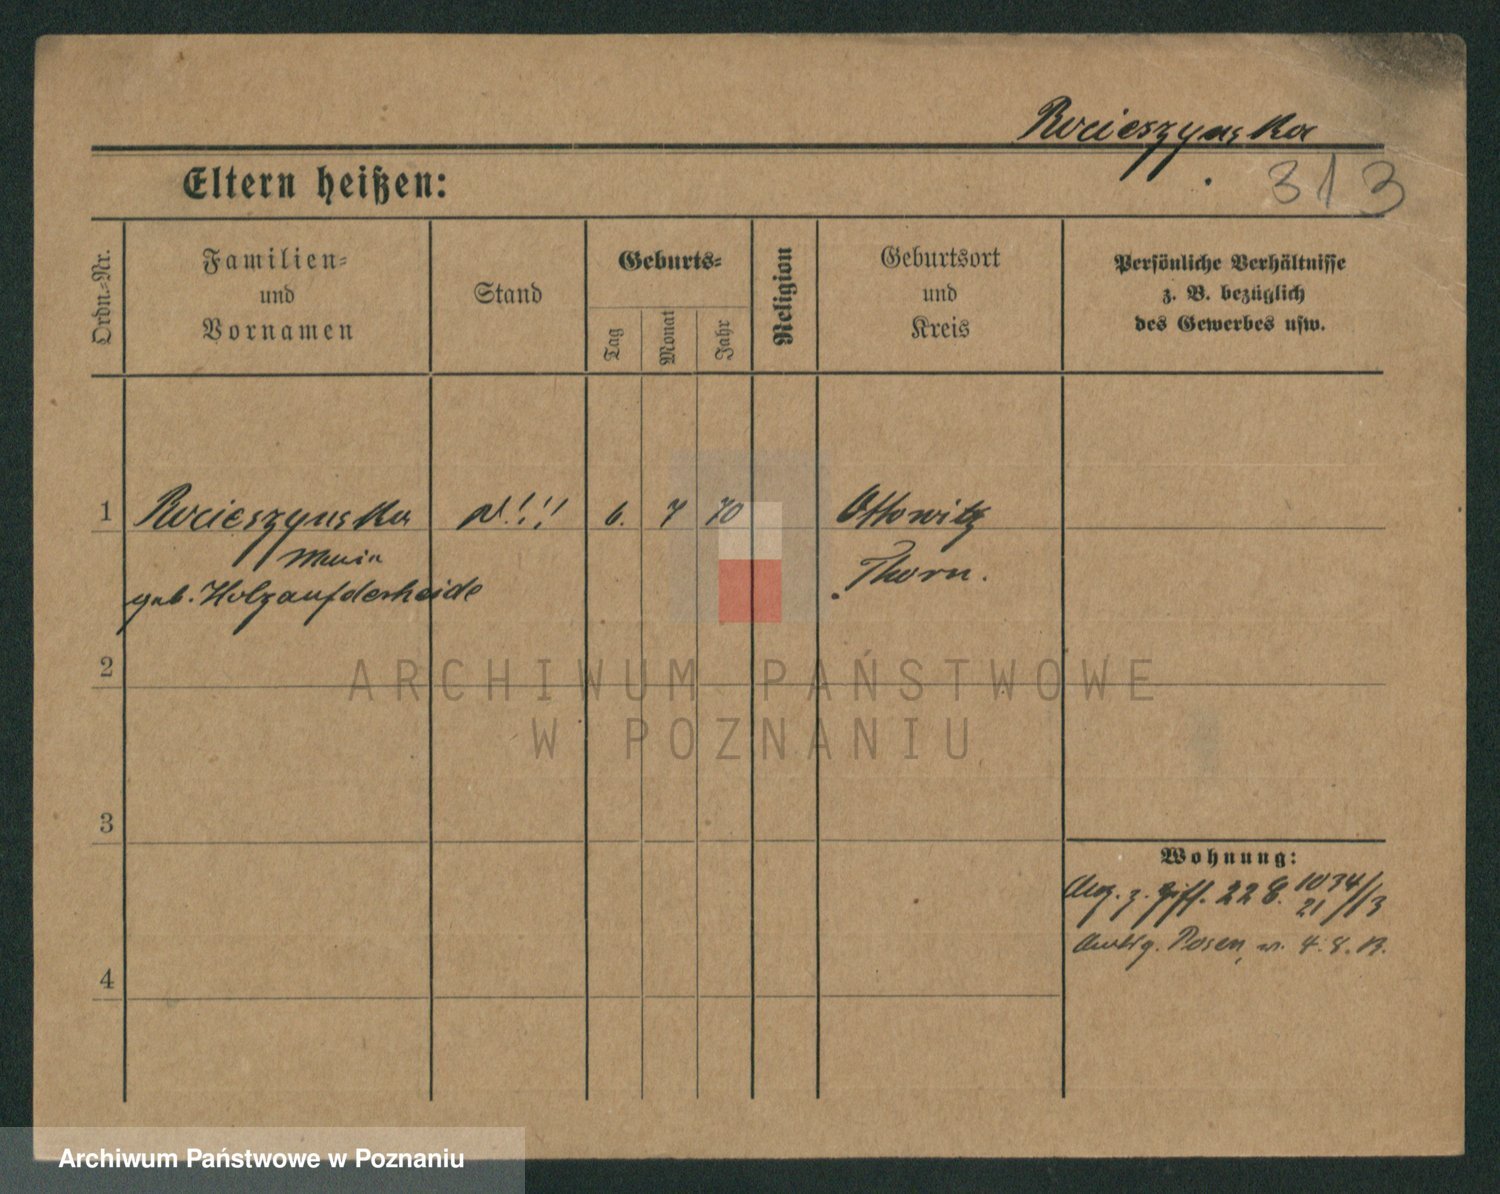 Rucieszynska
Eltern heißen:
313
Ordn.-Nr.
Familien-
und
Vornamen
Stand
Geburts-
Tag
Monat
Jahr
Religion
Geburtsort
und
Kreis
Persönliche Verhältnisse
z. B. bezüglich
des Gewerbes usw.
1 Rucieszynska 6. 7 70 Ottowitz
Thorn.
geb. Holzaufderheide
2
ARCHIWUM PAŃSTWOWE
W POZNANIU
3
Wohnung:
22 E. 1034/13
21
Posen, 4. 8. 13.
4
Archiwum Państwowe w Poznaniu